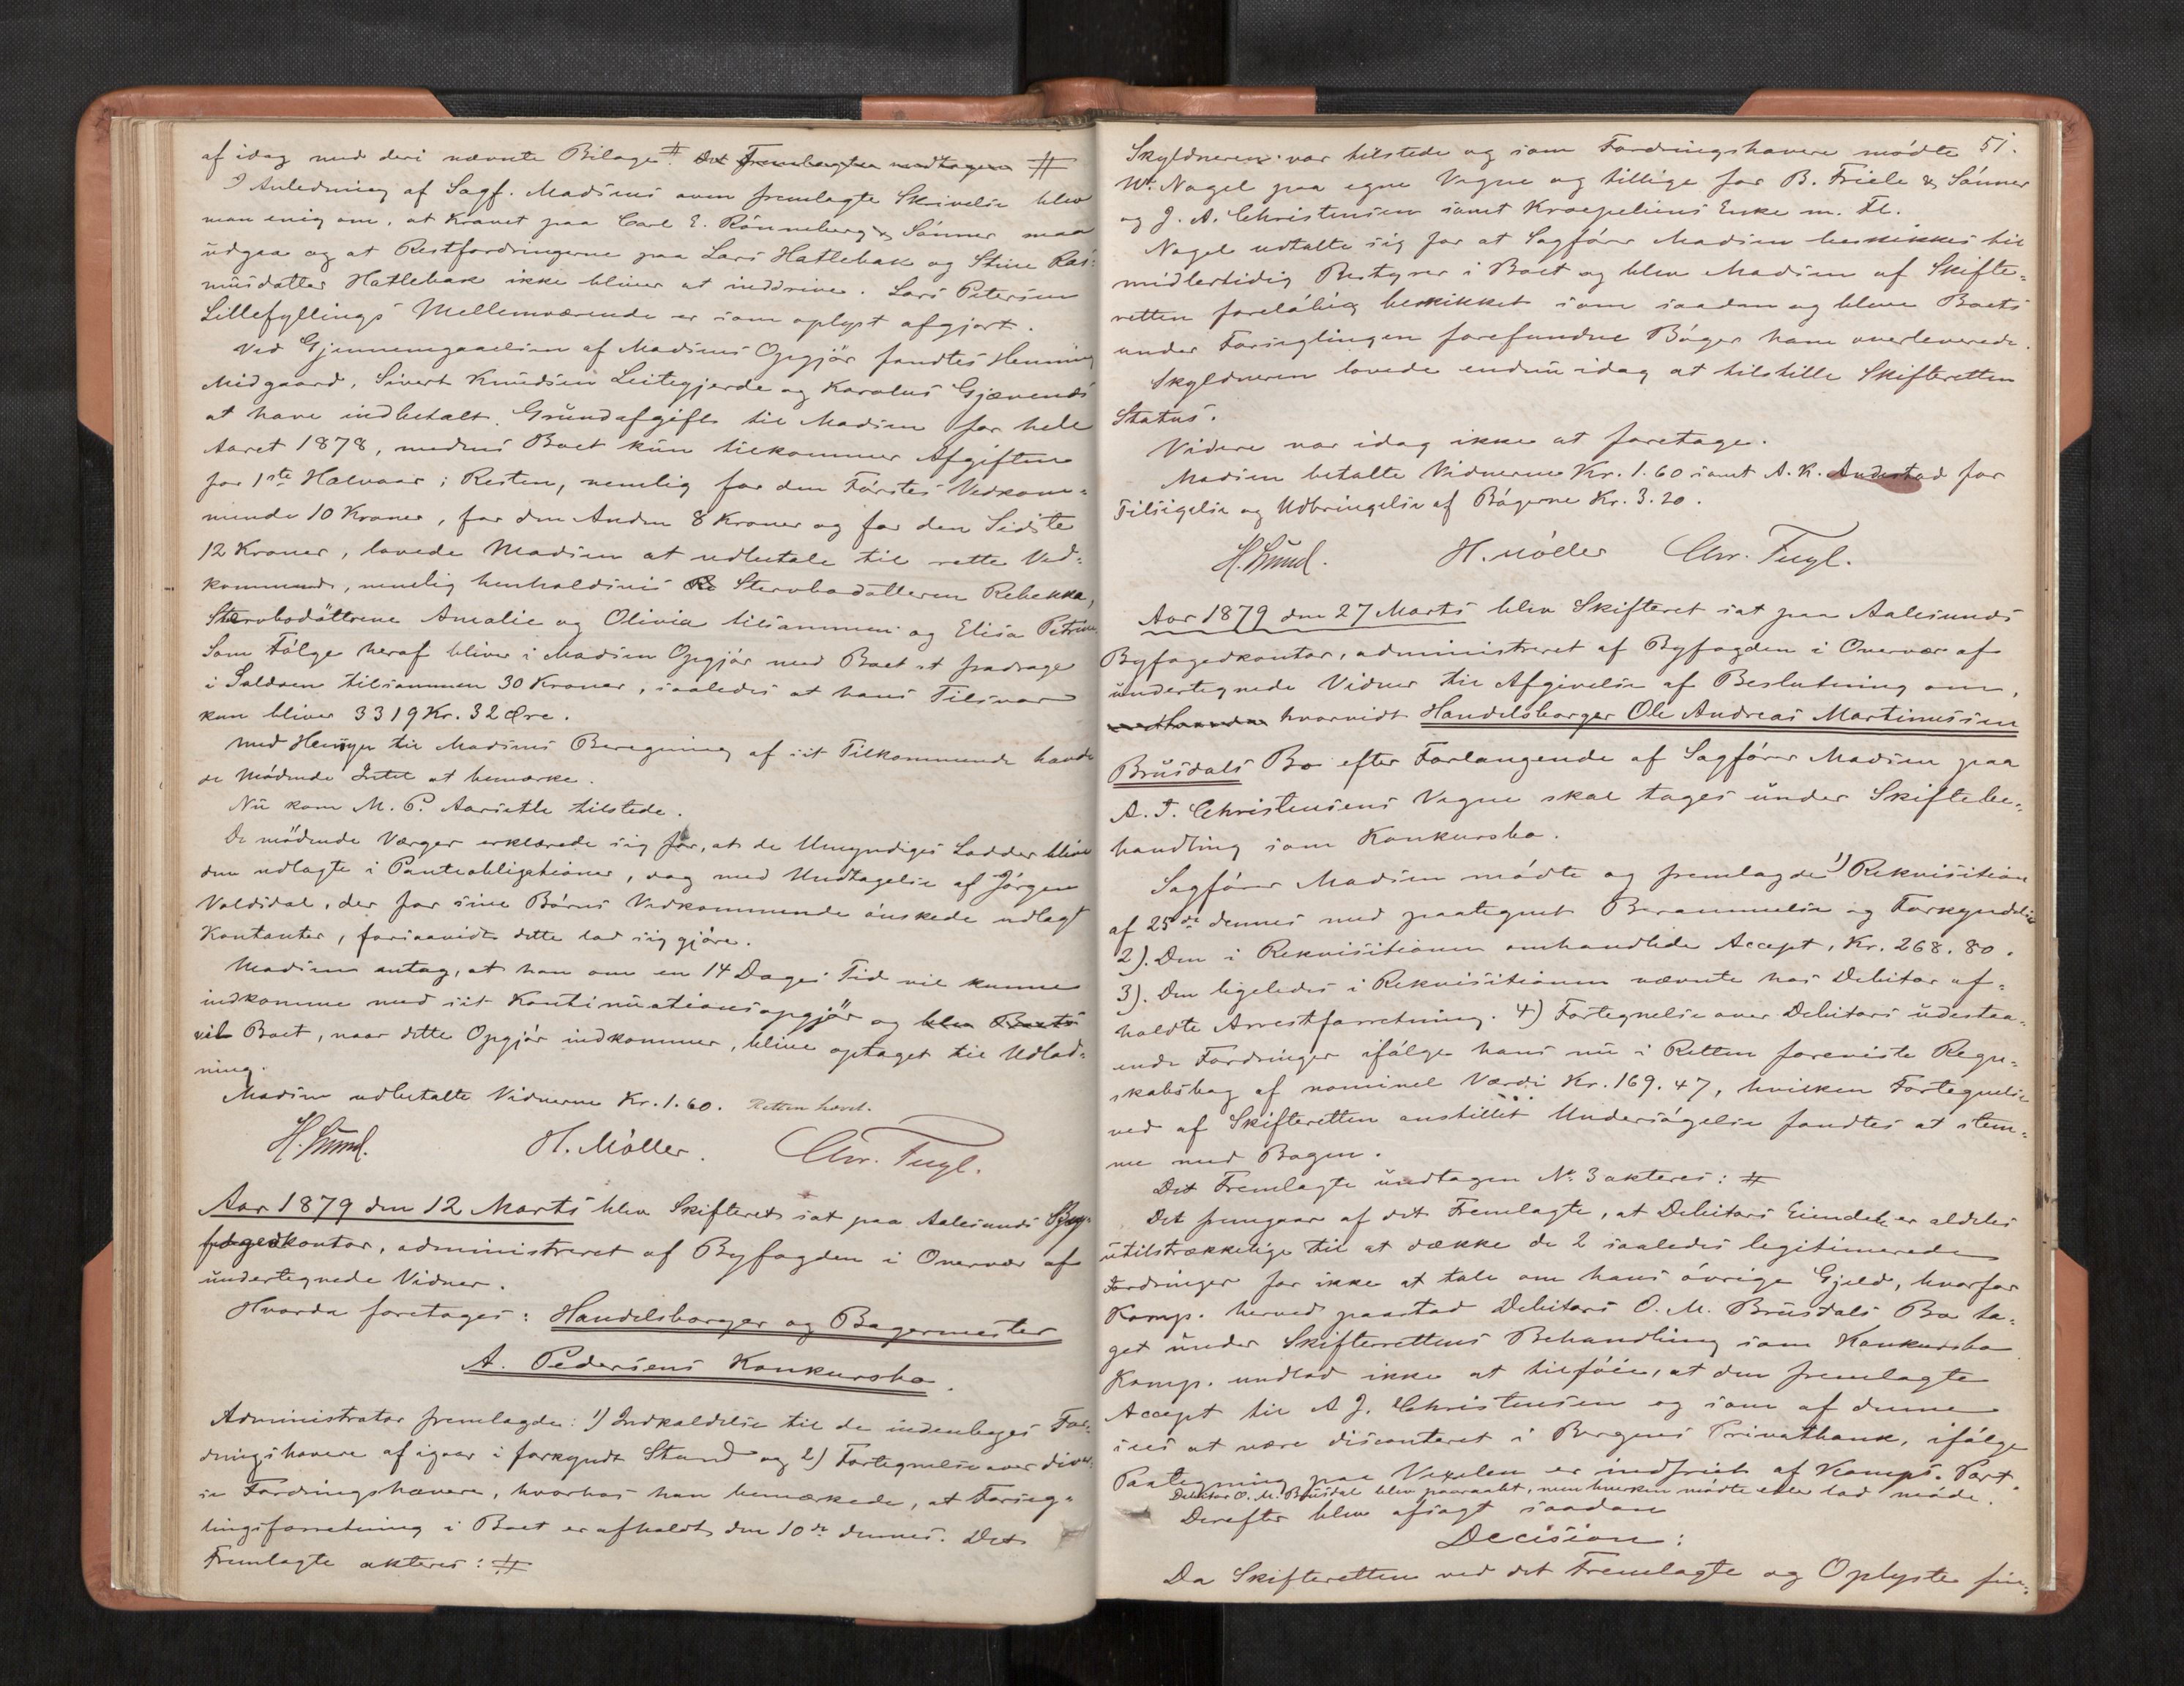 af idag med deri nævnte Bilage # Det Fremlagtes modtagen #
I Anledning af Sagf. Madsens oven fremlagte Skrivelse blev
man enig om, at Kravet paa Carl E. Rönneberg & Sönner maa
udgaa og at Restfordringerne paa Lars Hatlebak og Stine Ras-
musdatter Hatlebak ikke bliver at inddrive. Lars Petersen
Lillefyllings Mellemværende er som oplyst afgjort.
Ved Gjennemgaaelsen af Madsens Opgjör fandtes Henning
Midgaard, Sivert Knudsen Leitegjerde og Karolus Gjævenes
at have indbetalt Grundafgift til Madsen for hele
Aaret 1878, medens Boet kun tilkommer Afgiften
for 1ste Halvaar; Resten, nemlig for den Förstes Vedkom-
mende 10 Kroner, for den Anden 8 Kroner og for den Sidste
12 Kroner, lovede Madsen at udbetale til rette Ved-
kommende, nemlig henholdsvis Re Stervbodatteren Rebekka,
Stervbodöttrene Amalie og Olivia tilsammen og Elisa Petrine.
Som Fölge heraf bliver i Madsen Opgjör med Boet at fradrage
i Saldoen tilsammen 30 Kroner, saaledes at hans Tilsvar
kun bliver 3319 Kr. 32 Øre.
Med Hensyn til Madsens Beregning af sit Tilkommende havde
de Mödende Intet at bemærke.
Nu kom M. P. Aarsethe tilstede.
De mödende Værger erklærede sig for, at de Umyndiges Lodder blive
dem udlagte i Panteobligationer, dog med Undtagelse af Jörgen
Valdsdal, der for sine Börns Vedkommende önskede udlagt
Kontanter, forsaavidt dette lod sig gjöre.
Madsen antog, at han om en 14 Dages Tid vil kunne
indkomme med sit Kontinuationsopgjör og blev Boets
vil Boet, naar dette Opgjör indkommer, blive optaget til Udlod-
ning.
Madsen udbetalte Vidnerne Kr. 1.60. Retten hævet.
H. Lund. H. Möller. Chr. Fugl.
Aar 1879 den 12 Marts blev Skifteret sat paa Aalesunds By-
fogedkontor, administreret af Byfogden i Overvær af
undertegnede Vidner.
Hvorda foretoges: Handelsborger og Bagermester
A. Pedersens Konkursbo.
Administrator fremlagde: 1) Indkaldelse til de indenbyes For-
dringshavere af igaar i forkyndt Stand og 2) Fortegnelse over diver-
se Fordringshavere, hvorhos han bemærkede, at Forseg-
lingsforretning i Boet er afholdt den 10de dennes. Det
Fremlagte akteres: #
51.
Skyldneren var tilstede og som Fordringshavere mödte
W. Nagel paa egne Vegne og tillige for B. Friele & Sönner
og J. A. Christensen samt Kroepeliens Enke m. Fl.
Nagel udtalte sig for at Sagförer Madsen beskikkes til
midlertidig Bestyrer i Boet og blev Madsen af Skifte-
retten forelöbig beskikket som saadan og bleve Boets
under Forseglingen forefundne Böger ham overleverede.
Skyldneren lovede endnu idag at tilstille Skifteretten
Status.
Videre var idag ikke at foretage.
Madsen betalte Vidnerne Kr. 1.60 samt A. K. Andestad for
Tilsigelse og Udbringelse af Bögerne Kr. 3.20.
H. Lund. H. Möller Chr. Fugl.
Aar 1879 den 27 Marts blev Skifteret sat paa Aalesunds
Byfogedkontor, administreret af Byfogden i Overvær af
undertegnede Vidner til Afgivelse af Beslutning om,
hvorvidt Handelsborger Ole Andreas Martinussen
Brusdals Bo efter Forlangende af Sagförer Madsen paa
A. J. Christensens Vegne skal tages under Skiftebe-
handling som Konkursbo.
Sagförer Madsen mödte og fremlagde 1) Rekvisition
af 25de dennes med paategnet Berammelse og Forkyndelse
2). Den i Rekvisitionen omhandlede Accept, Kr. 268.80.
3). Den ligeledes i Rekvisitionen nævnte hos Debitor af-
holdte Arrestforretning. 4) Fortegnelse over Debitors udestaa-
ende Fordringer ifölge hans nu i Retten foreviste Regn-
skabsbog af nominel Værdi Kr. 169.47, hvilken Fortegnelse
ved af Skifteretten anstillet Undersögelse fandtes at stem-
me med Bogen.
Det Fremlagte undtagen No 3 akteres: #
Det fremgaar af det Fremlagte, at Debitors Eiendele er aldeles
utilstrækkelige til at dække de 2 saaledes legitimerede
Fordringer for ikke at tale om hans övrige Gjeld, hvorfor
Komp. herved paastod Debitors O. M. Brusdals Bo ta-
get under Skifterettens Behandling som Konkursbo
Komp. undlod ikke at tilföie, at den fremlagte
Accept til A J. Christensen og som af denne
sees at være disconteret i Bergens Privatbank, ifölge
Paategning paa Vexelen er indfriet af Komps. Part.
Debitor O. M. Brusdal blev paaraabt, men hverken mödte eller lod möde.
Derefter blev afsagt saadan
Decision:
Da Skifteretten ved det Fremlagte og Oplyste fin-